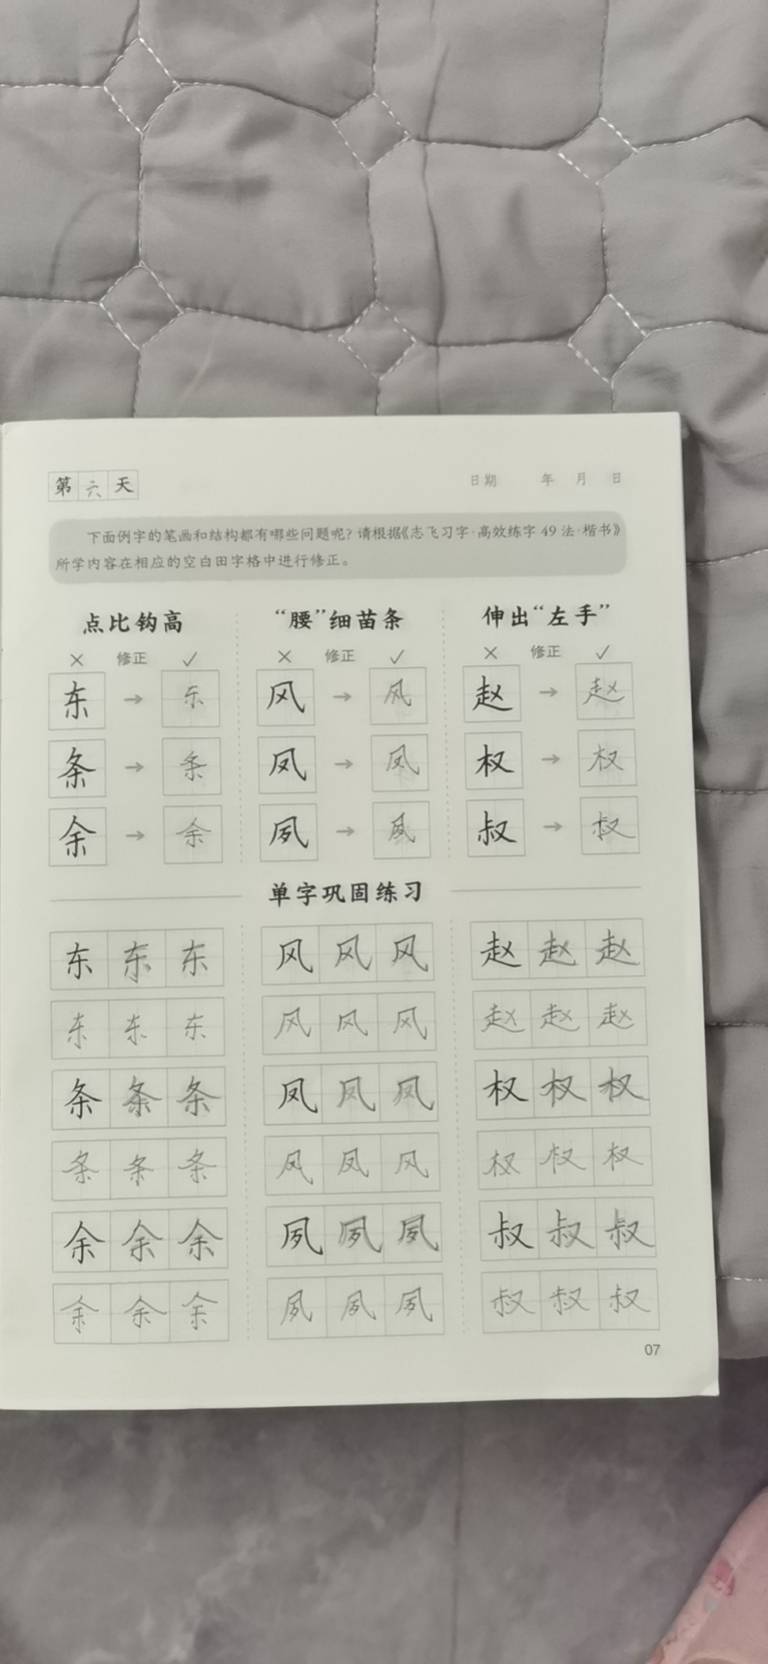 第六天 日期 年 月 日
下面例字的笔画和结构都有哪些问题呢？请根据《志飞习字·高效练字49法·楷书》
所学内容在相应的空白田字格中进行修正。
点比钩高 “腰”细苗条 伸出“左手”
× 修正 ✓ × 修正 ✓ × 修正 ✓
东 → 东 风 → 风 赵 → 赵
条 → 条 凤 → 凤 权 → 权
余 → 余 夙 → 夙 叔 → 叔
单字巩固练习
东 东 东 风 风 风 赵 赵 赵
东 东 东 风 风 风 赵 赵 赵
条 条 条 凤 凤 凤 权 权 权
条 条 条 凤 凤 风 权 权 权
余 余 余 夙 夙 夙 叔 叔 叔
余 余 余 夙 夙 夙 叔 叔 叔
07